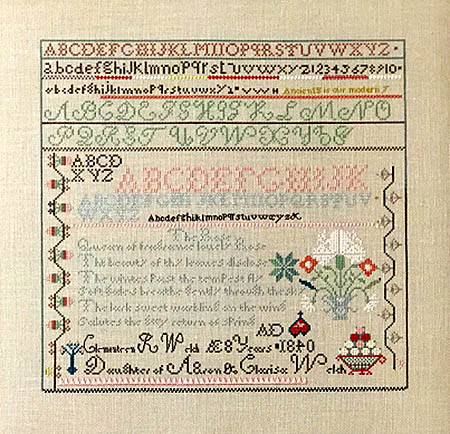 ABCDEFGHIJKLMNOPQRSTUVWXYZ
abcdefghijklmnopqrstuvwxyz12345678910
abcdefghijklmnopqrstuvwxyz Ancient is our modern
ABCDEFGHIJKLMNO
PQRSTUVWXYZ
ABCD
XYZ
ABCDEFGHIJK
ABCDEFGHIJKLMNOPQRSTUV
WXYZ
Abcdefghijklmnopqrstuvwxyz
The Rose
Queen of fragrance lovely Rose
The beauty of thy leaves disclose
The winters past the tempest fly
Soft gales breathe gently through the sky
The lark sweet warbling on the wing
Salutes the gay return of Spring
AD
Clementeen R Welch Æ 8 Years 1840
Daughter of Aaron & Clarisa Welch